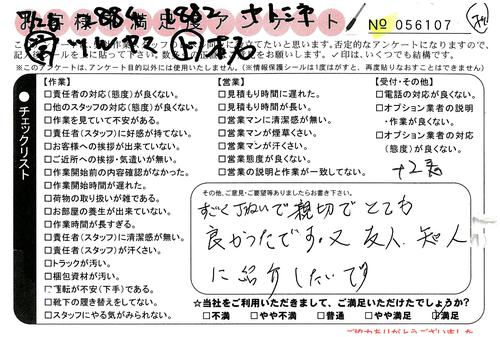 お客様満足度アンケート
№ 056107
※このアンケートは、アンケート目的以外には使用いたしません。(※情報保護シールは1度はがすと、再度貼りなおすことはできません)
チェックリスト
【作業】
□責任者の対応(態度)が良くない。
□他のスタッフの対応(態度)が良くない。
□作業を見ていて不安がある。
□責任者(スタッフ)に好感が持てない。
□お客様への挨拶が出来ていない。
□ご近所への挨拶・気遣いが無い。
□作業開始前の内容確認がなかった。
□作業開始時間が遅れた。
□荷物の取り扱いが雑である。
□お部屋の養生が出来ていない。
□作業時間が長すぎる。
□責任者(スタッフ)に清潔感が無い。
□責任者(スタッフ)が汗くさい。
□トラックが汚い。
□梱包資材が汚い。
□運転が不安(下手)である。
□靴下の履き替えをしてない。
□スタッフにやる気がみられない。
【営業】
□見積もり時間に遅れた。
□見積もり時間が長い。
□営業マンに清潔感が無い。
□営業マンが煙草くさい。
□営業マンが汗くさい。
□営業態度が良くない。
□営業の説明と作業が一致してない。
【受付・その他】
□電話の対応が良くない。
□オプション業者の説明
・作業が良くない。
□オプション業者の対応
(態度)が良くない。
その他、ご意見・ご要望等ありましたらお書き下さい。
すごく丁ねいで親切でとても
良かったです。又 友人、知人
に紹介したいです
☆当社をご利用いただきまして、ご満足いただけたでしょうか?
□不満 □やや不満 □普通 □やや満足 ☑満足
ご協力ありがとうございました